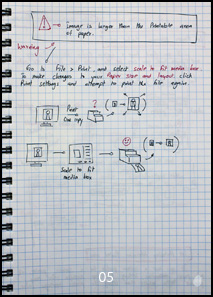 Image is larger than the Printable area
of paper.
Warning
Go to File > Print, and select scale to fit media box
To make changes to your Paper size and layout, click
Print settings and attempt to print the file again.
Print
One copy
?
Scale to fit
media box
05